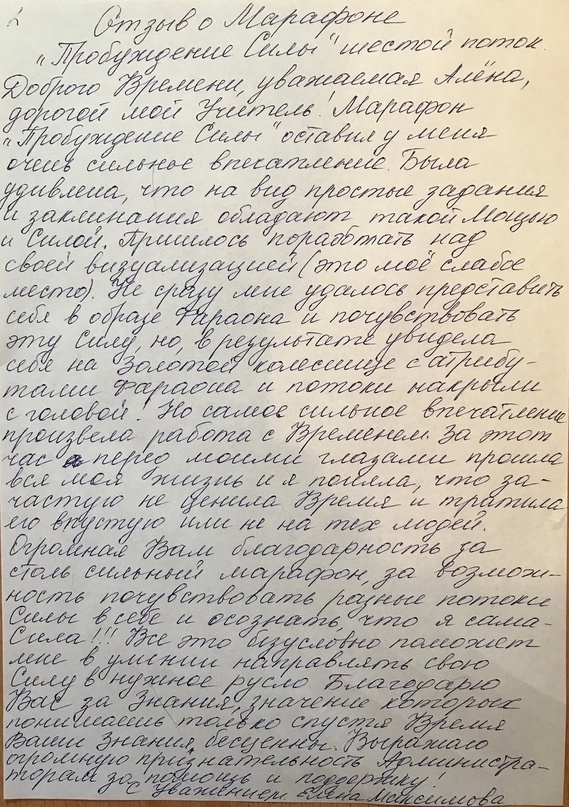 Отзыв о Марафоне
„Пробуждение Силы" шестой поток.
Доброго Времени, уважаемая Алёна,
дорогой мой Учитель! Марафон
„Пробуждение Силы" оставил у меня
очень сильное впечатление. Была
удивлена, что на вид простые задания
и заклинания обладают такой Мощью
и Силой. Пришлось поработать над
своей визуализацией (это моё слабое
место). Не сразу мне удалось представить
себя в образе Фараона и почувствовать
эту Силу, но, в результате увидела
себя на Золотой колеснице с атрибу-
тами Фараона и потоки накрыли
с головой! Но самое сильное впечатление
произвела работа с Временем. За этот
час перед моими глазами прошла
вся моя жизнь и я поняла, что за-
частую не ценила Время и тратила
его впустую или не на тех людей.
Огромная Вам благодарность за
столь сильный марафон, за возмож-
ность почувствовать разные потоки
Силы в себе и осознать, что я сама-
Сила!!! Все это безусловно поможет
мне в умении направлять свою
Силу в нужное русло. Благодарю
Вас за Знания, значение которых
понимаешь только спустя Время
Ваши Знания, бесценны. Выражаю
огромную признательность Администра-
торам за помощь и поддержку!
С уважением, Максимова